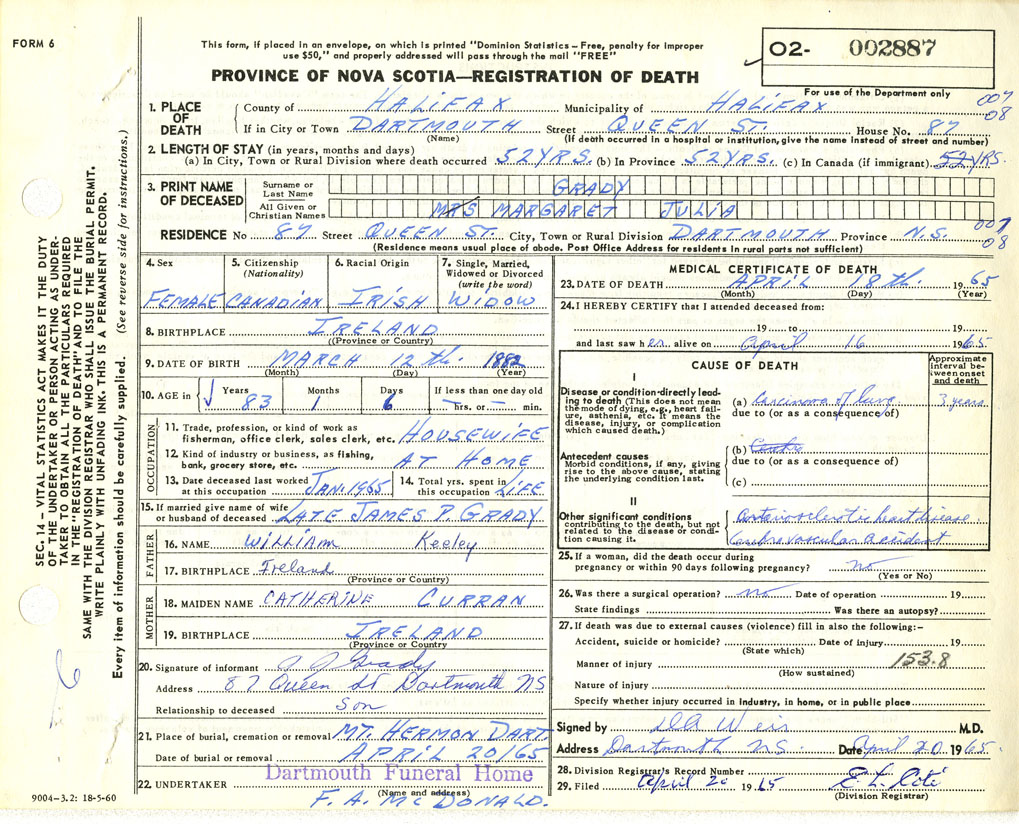 FORM 6
This form, if placed in an envelope, on which is printed "Dominion Statistics – Free, penalty for improper
use $50," and properly addressed will pass through the mail "FREE"
PROVINCE OF NOVA SCOTIA—REGISTRATION OF DEATH
O2- 002887
For use of the Department only
007
08
1. PLACE OF DEATH County of HALIFAX Municipality of HALIFAX
If in City or Town DARTMOUTH Street QUEEN ST. House No. 87
(Name) (If death occurred in a hospital or institution, give the name instead of street and number)
2. LENGTH OF STAY (in years, months and days)
(a) In City, Town or Rural Division where death occurred 52 YRS. (b) In Province 52 YRS. (c) In Canada (if immigrant) 52 YRS.
3. PRINT NAME OF DECEASED
Surname or Last Name GRADY
All Given or Christian Names MRS MARGARET JULIA
RESIDENCE No 87 Street QUEEN ST. City, Town or Rural Division DARTMOUTH Province N.S.
007
08
(Residence means usual place of abode. Post Office Address for residents in rural parts not sufficient)
4. Sex FEMALE
5. Citizenship (Nationality) CANADIAN
6. Racial Origin IRISH
7. Single, Married, Widowed or Divorced (write the word) WIDOW
8. BIRTHPLACE IRELAND
((Province or Country)
9. DATE OF BIRTH MARCH 12th. 1882
(Month) (Day) (Year)
10. AGE in Years 83 Months 1 Days 6 If less than one day old – hrs. or – min.
OCCUPATION
11. Trade, profession, or kind of work as fisherman, office clerk, sales clerk, etc. HOUSEWIFE
12. Kind of industry or business, as fishing, bank, grocery store, etc. AT HOME
13. Date deceased last worked at this occupation JAN. 1965
14. Total yrs. spent in this occupation LIFE
15. If married give name of wife or husband of deceased LATE JAMES P. GRADY
FATHER
16. NAME WILLIAM Keeley
17. BIRTHPLACE Ireland
(Province or Country)
MOTHER
18. MAIDEN NAME CATHERINE CURRAN
19. BIRTHPLACE IRELAND
(Province or Country)
20. Signature of informant Grady
Address 87 Queen St Dartmouth NS
Relationship to deceased Son
21. Place of burial, cremation or removal MT. HERMON DART.
Date of burial or removal APRIL 20/65
22. UNDERTAKER Dartmouth Funeral Home
(Name and address)
F. A. McDONALD.
9004–3.2: 18-5-60
MEDICAL CERTIFICATE OF DEATH
23. DATE OF DEATH APRIL 18th. 1965
(Month) (Day) (Year)
24. I HEREBY CERTIFY that I attended deceased from:
19 to
19
and last saw her alive on April 16 1965.
CAUSE OF DEATH
Approximate interval between onset and death
I
Disease or condition directly leading to death (This does not mean the mode of dying, e.g., heart failure, asthenia, etc. It means the disease, injury, or complication which caused death.)
(a) Carcinoma of lung 3 years
due to (or as a consequence of)
Antecedent causes
Morbid conditions, if any, giving rise to the above cause, stating the underlying condition last.
(b)
due to (or as a consequence of)
(c)
II
Other significant conditions
contributing to the death, but not related to the disease or condition causing it.
Arteriosclerotic heart disease
Cerebrovascular accident
25. If a woman, did the death occur during pregnancy or within 90 days following pregnancy? no
(Yes or No)
26. Was there a surgical operation? no Date of operation 19
State findings Was there an autopsy?
27. If death was due to external causes (violence) fill in also the following:-
Accident, suicide or homicide? Date of injury 19
(State which)
153.8
Manner of injury
(How sustained)
Nature of injury
Specify whether injury occurred in Industry, in home, or in public place
Signed by D A Weir M.D.
Address Dartmouth N.S. Date April 20. 1965.
28. Division Registrar's Record Number
29. Filed April 20 1965
(Division Registrar)
SEC. 14 —VITAL STATISTICS ACT MAKES IT THE DUTY
OF THE UNDERTAKER OR PERSON ACTING AS UNDER-
TAKER TO OBTAIN ALL THE PARTICULARS REQUIRED
IN THE "REGISTRATION OF DEATH" AND TO FILE THE
SAME WITH THE DIVISION REGISTRAR WHO SHALL ISSUE THE BURIAL PERMIT.
WRITE PLAINLY WITH UNFADING INK. THIS IS A PERMANENT RECORD.
Every item of information should be carefully supplied. (See reverse side for instructions.)
6